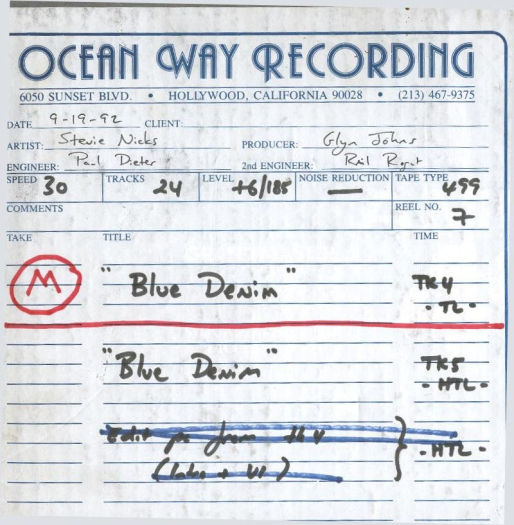 OCEAN WAY RECORDING
6050 SUNSET BLVD. • HOLLYWOOD, CALIFORNIA 90028 • (213) 467-9375
DATE 9-19-92 CLIENT:
ARTIST: Stevie Nicks PRODUCER: Glyn Johns
ENGINEER: Paul Dieter 2nd ENGINEER:
SPEED 30 TRACKS 24 LEVEL +6/185 NOISE REDUCTION — TAPE TYPE 499
COMMENTS REEL NO. 7
TAKE TITLE TIME
M "Blue Denim" TK4
- TL -
"Blue Denim" TK5
- HTL -
Edit pc from tk 4 - HTL -